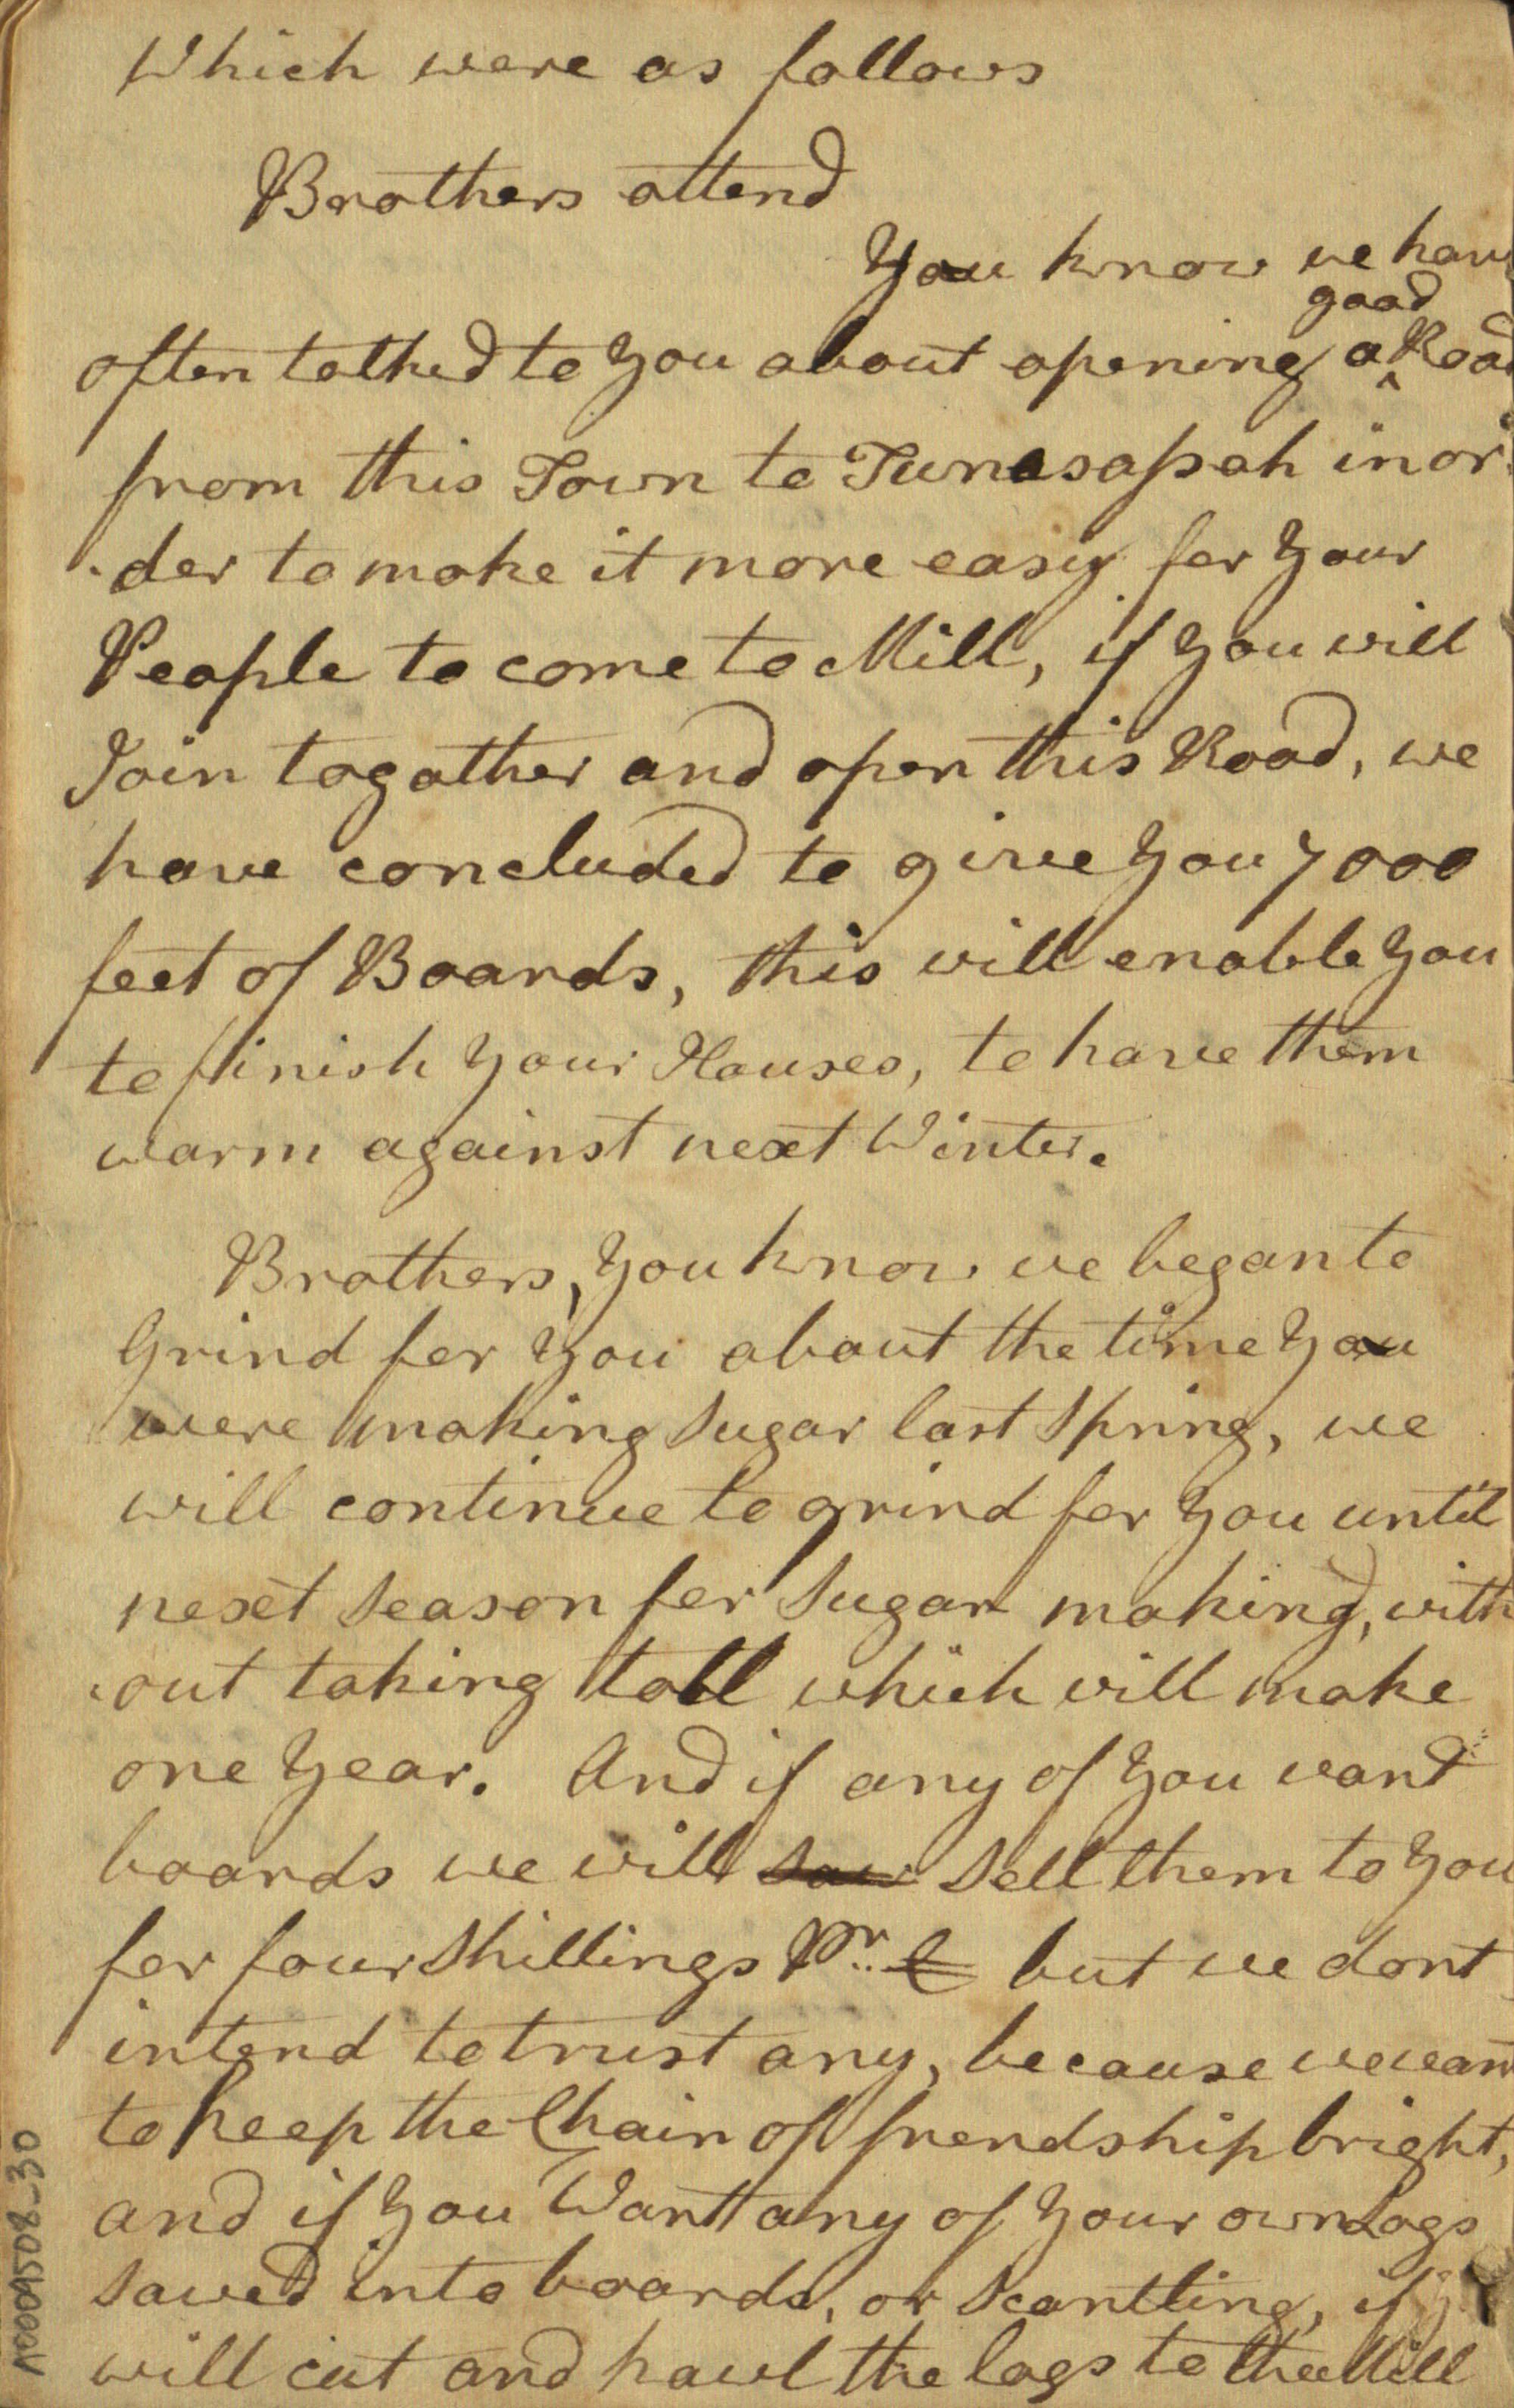 Which were as follows
Brothers attend
You know we have
good
often talked to You about opening a ^ Road
from this Town to Tunasassah in or
-der to make it more easy for Your
People to come to Mill, if You will
Join togather and open this Road, we
have concluded to give You 7000
feet of Boards, this will enable You
to finish Your Houses, to have them
warm against next Winter.
Brothers, You know we began to
Grind for You about the time You
were making Sugar last Spring, we
will continue to grind for You until
next Season for Sugar making, with
-out taking toll which will make
one Year. And if any of You want
boards we will saw Sell them to You
for four Shillings Pr. C but we dont
intend to trust any, because we want
to keep the Chain of friendship bright,
and if You Want any of Your own Logs
Sawed into boards, or Scantling, if
will cut and hawl the logs to the Mill
A0009508-30